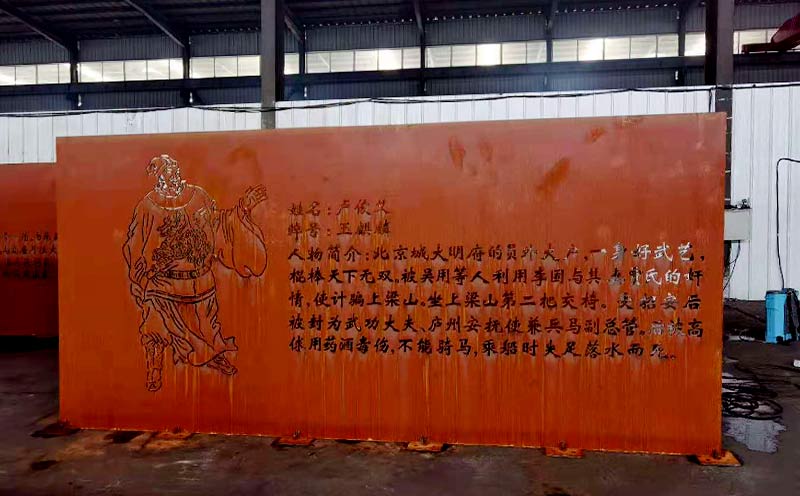 姓名:卢俊义
绰号:玉麒麟
人物简介:北京城大明府的员外大户,一身好武艺,
棍棒天下无双,被吴用等人利用李固与其贾氏的奸
情,使计骗上梁山,坐上梁山第二把交椅。招安后
被封为武功大夫、庐州安抚使兼兵马副总管。后被高
俅用药酒毒伤,不能骑马,乘船时失足落水而死。